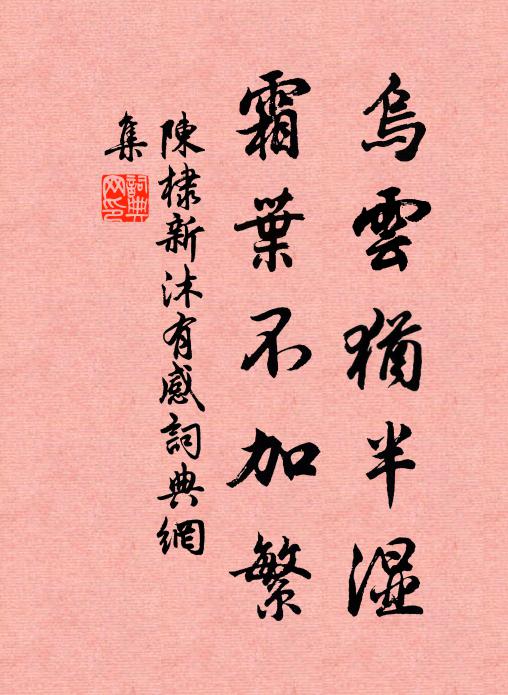 烏雲猶半濕
霜葉不加繁
陳棣新沐有感詞典網
集
詞典
网印